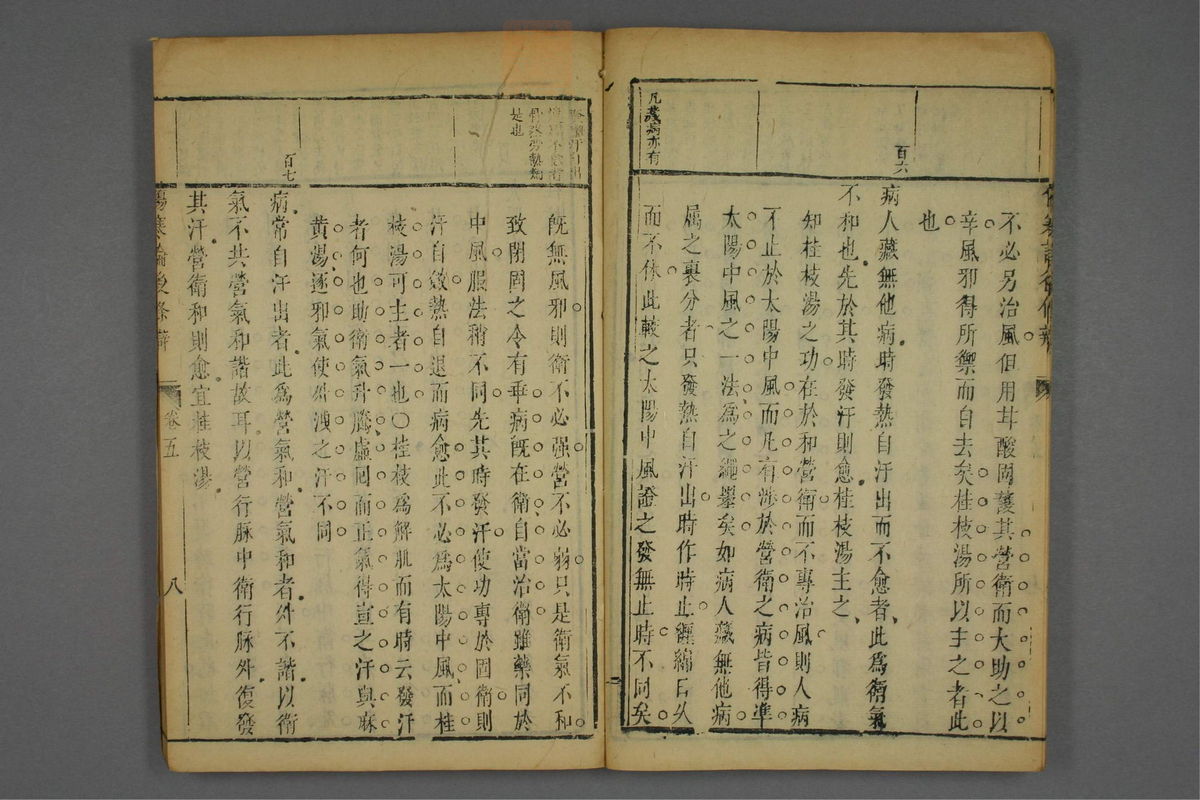 百六
凡蓑病亦有
不必另治風但用甘酸固護其營衛而大助之以
辛風邪得所禦而自去矣桂枝湯所以主之者此
也
病人藏無他病時發熱自汗出而不愈者此爲衛氣
不和也先於其時發汗則愈桂枝湯主之
知桂枝湯之功在於和營衛而不專治風則人病
不止於太陽中風而凡有涉於營衛之病皆得準
太陽中風之一法爲之繩墨矣如病人藏無他病
屬之裏分者只發熱自汗出時作時止纏綿日久
而不休此較之太陽中風證之發無止時不同矣
汗自出
不愈者
骨蒸勞熱類
是也
百七
既無風邪則衛不必强營不必弱只是衛氣不和
致閉固之令有乖病既在衛自當治衛雖藥同於
中風服法稍不同先其時發汗使功專於固衛則
汗自斂熱自退而病愈此不必爲太陽中風而桂
枝湯可主者一也○桂枝爲解肌而有時云發汗
者何也助衛氣升騰虛回而正氣得宣之汗與麻
黃湯逐邪氣使外洩之汗不同
病常自汗出者此爲營氣和營氣和者外不諧以衛
氣不共營氣和諧故耳以營行脉中衛行脉外復發
其汗營衛和則愈宜桂枝湯
傷寒論後條辨
卷五
八